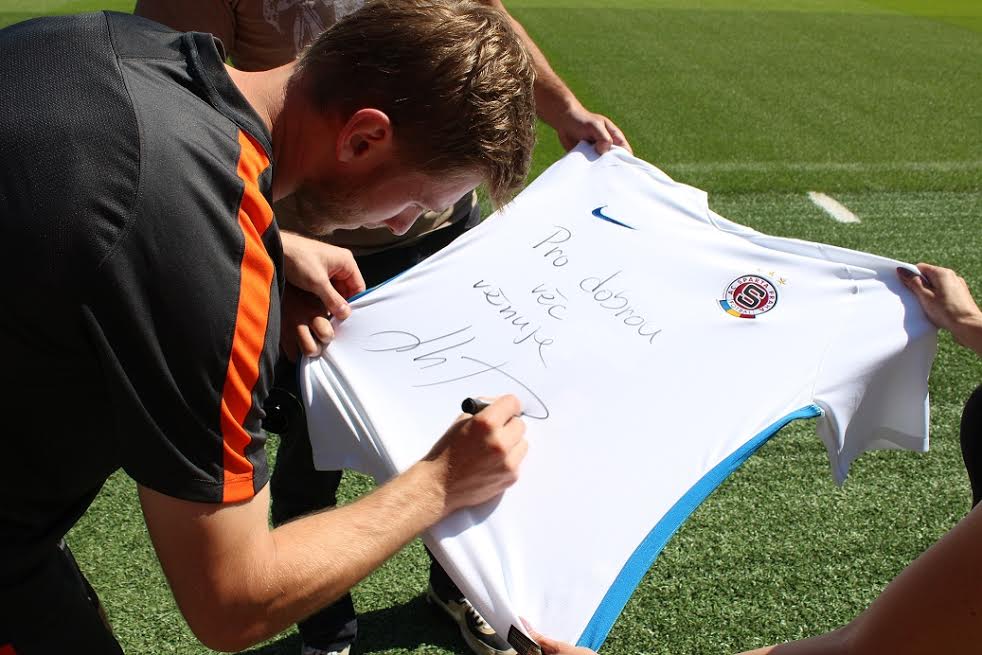 Pro dobrou
věc
věnuje
AC SPARTA PRAHA
FOTBAL
S